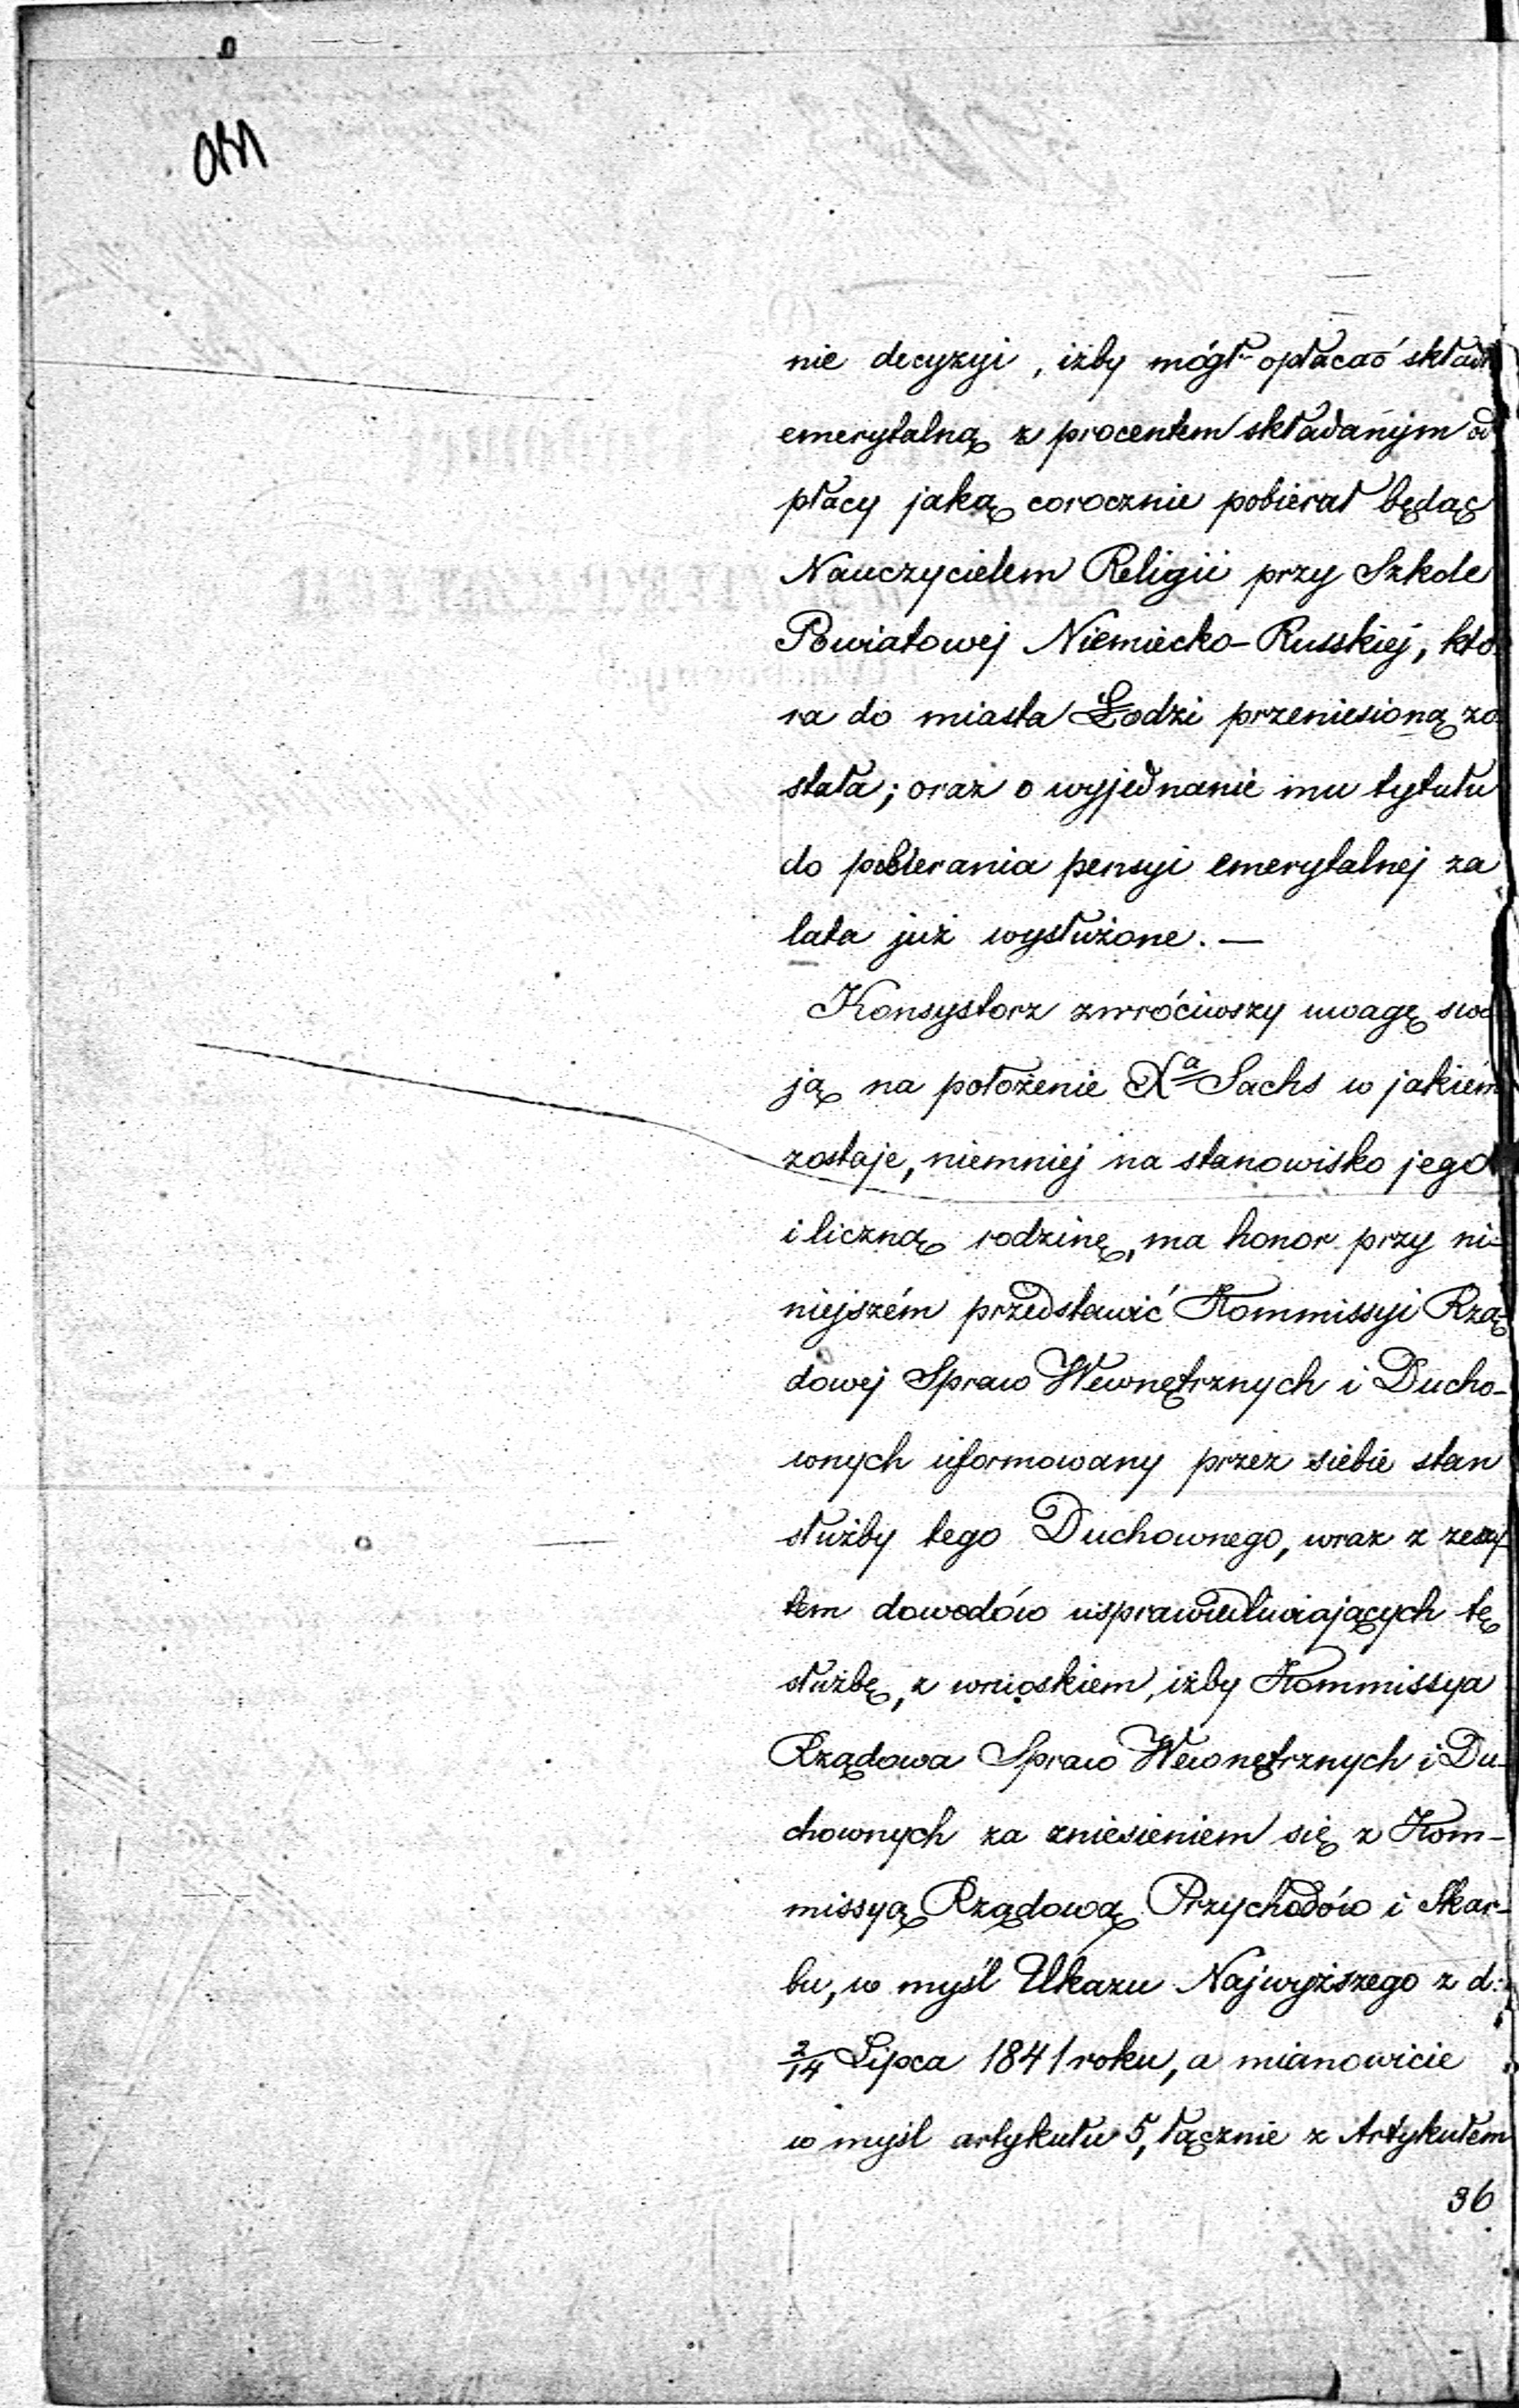 nie decyzyi, iżby mógł opłacać składk
emerytalną z procentem składanym od
płacy jaką corocznie pobierał będąc
Nauczycielem Religii przy Szkole
Powiatowej Niemiecko-Russkiej, któ-
ra do miasta Łodzi przeniesioną zo
stała; oraz o wyjednanie mu tytułu
do pobierania pensyi emerytalnej za
lata już wysłużone. —
Konsystorz zwróciwszy uwagę swo
ją na położenie Xa Sachs w jakiem
zostaje, niemniej na stanowisko jego
i liczną rodzinę, ma honor przy ni-
niejszém przedstawić Kommissyi Rzą
dowej Spraw Wewnętrznych i Ducho-
wnych uformowany przez siebie stan
służby tego Duchownego, wraz z zeszy-
tem dowodów usprawiedliwiających tę
służbę, z wnioskiem, iżby Kommissya
Rządowa Spraw Wewnętrznych i Du-
chownych za zniesieniem się z Kom-
missyą Rządową Przychodów i Skar-
bu, w myśl Ukazu Najwyższego z d:
2/14 Lipca 1841 roku, a mianowicie
w myśl artykułu 5, łącznie z Artykułem
36